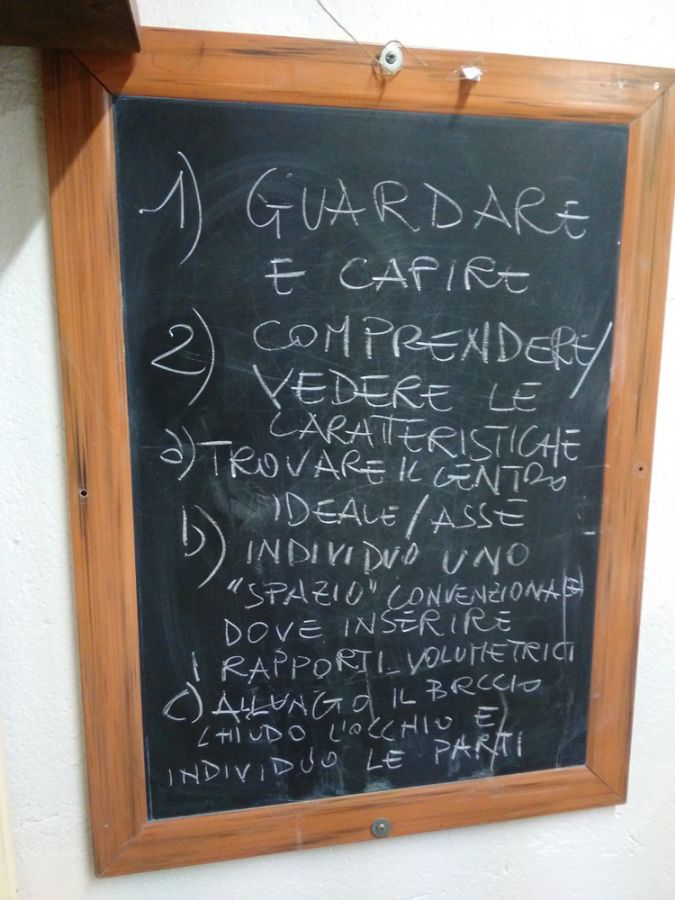 1) GUARDARE
E CAPIRE
2) COMPRENDERE/
VEDERE LE
CARATTERISTICHE
a) TROVARE IL CENTRO
IDEALE/ASSE
b) INDIVIDUO UNO
"SPAZIO" CONVENZIONALE
DOVE INSERIRE
I RAPPORTI VOLUMETRICI
c) ALLUNGO IL BRCCIO
CHIUDO L'OCCHIO E
INDIVIDUO LE PARTI